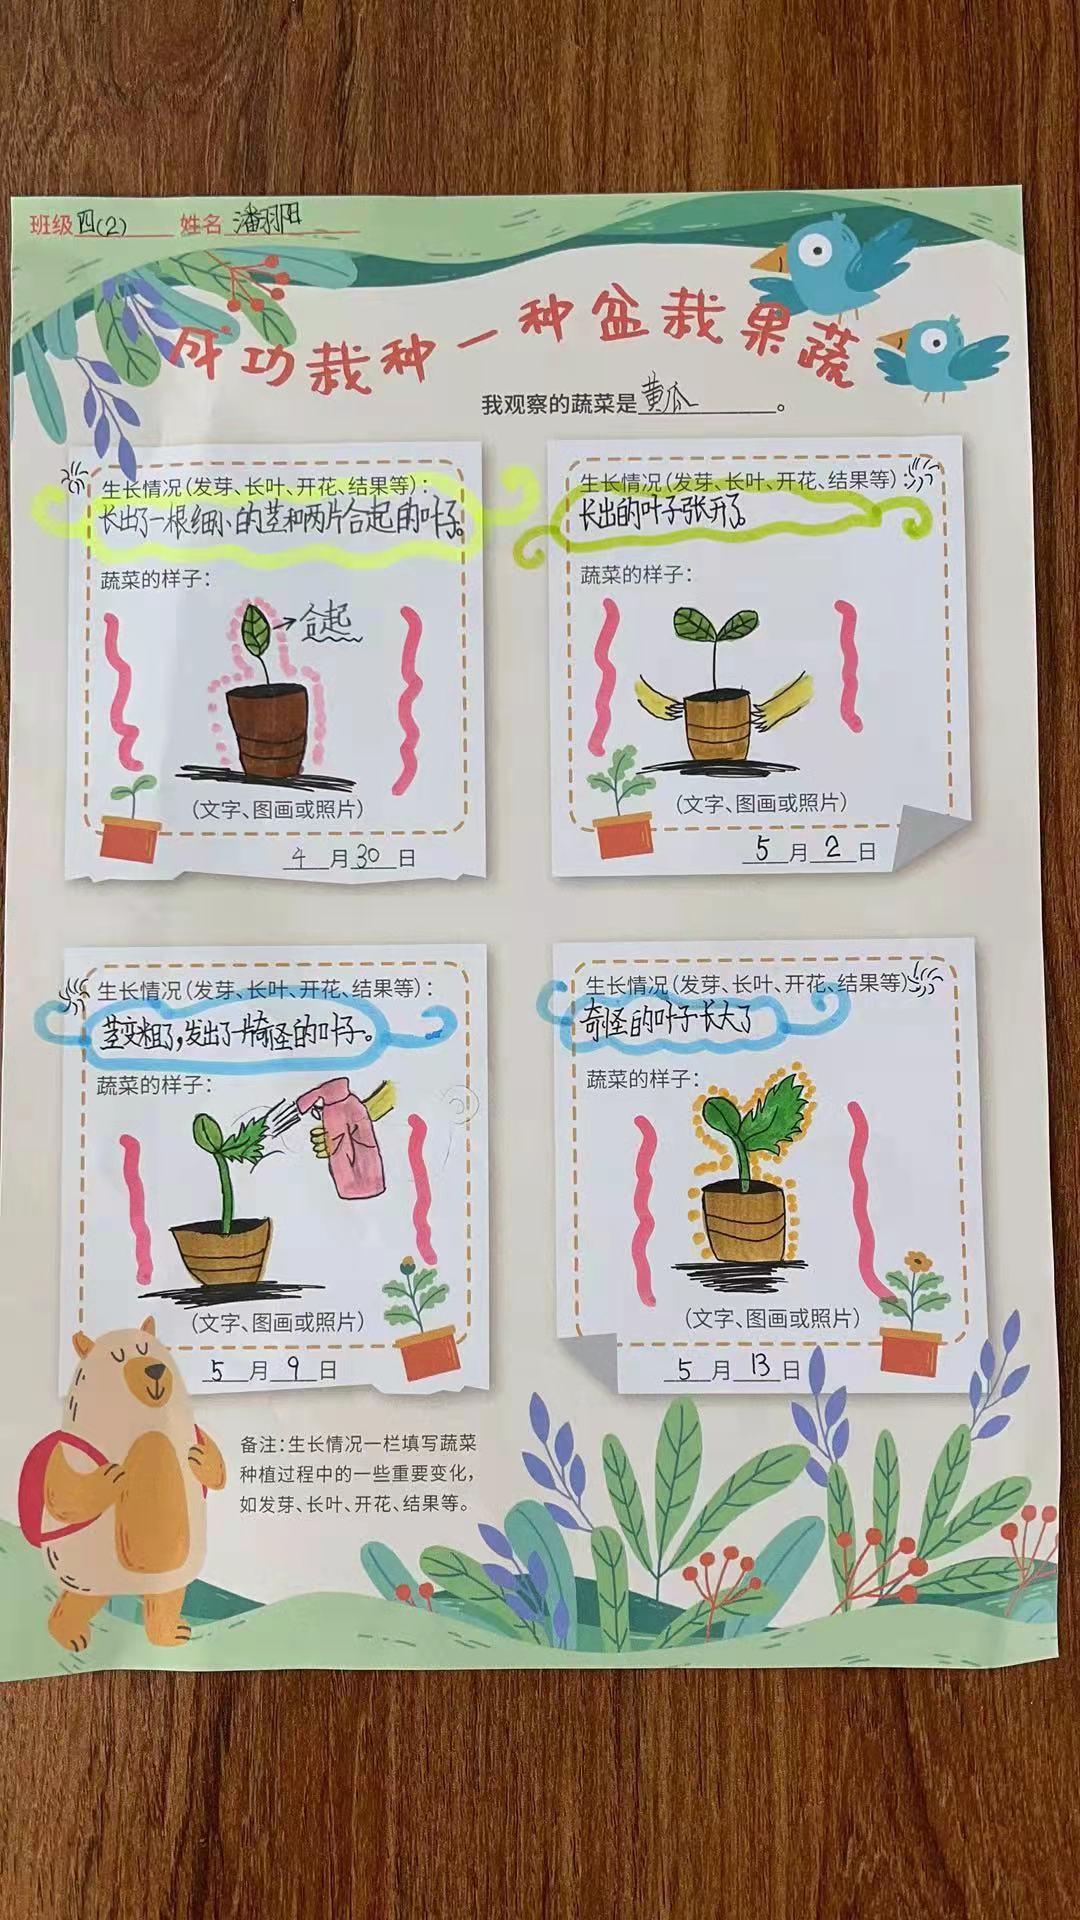 班级四(2) 姓名潘羽阳
成功栽种一种盆栽果蔬
我观察的蔬菜是黄瓜。
生长情况(发芽、长叶、开花、结果等):
长出了一根细小的茎和两片合起的叶子。
蔬菜的样子:
合起
(文字、图画或照片)
4月30日
生长情况(发芽、长叶、开花、结果等):
长出的叶子张开了。
蔬菜的样子:
(文字、图画或照片)
5月2日
生长情况(发芽、长叶、开花、结果等):
茎变粗了,发出了一片奇怪的叶子。
蔬菜的样子:
水
(文字、图画或照片)
5月9日
生长情况(发芽、长叶、开花、结果等):
奇怪的叶子长大了
蔬菜的样子:
(文字、图画或照片)
5月13日
备注:生长情况一栏填写蔬菜
种植过程中的一些重要变化,
如发芽、长叶、开花、结果等。